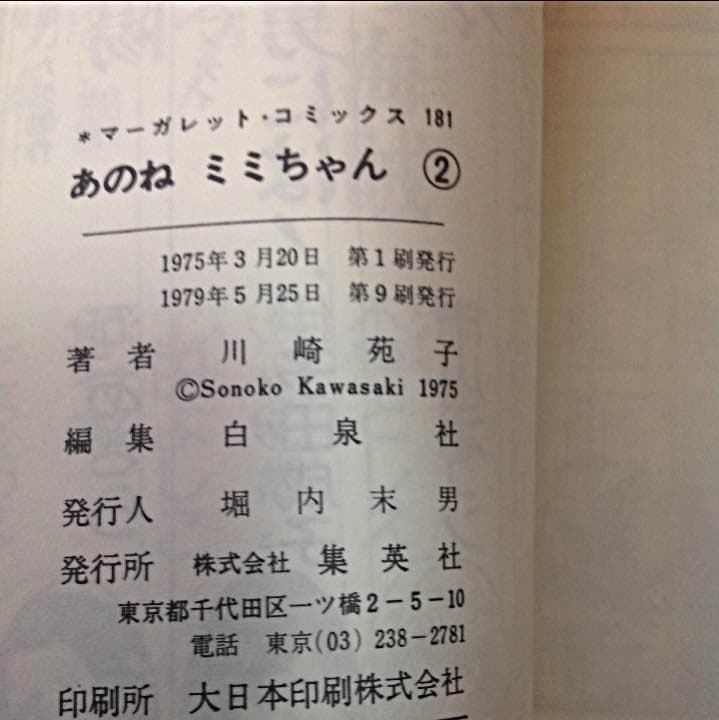 *マーガレット・コミックス 181
あのね ミミちゃん ②
1975年3月20日 第1刷発行
1979年5月25日 第9刷発行
著者 川崎苑子
©Sonoko Kawasaki 1975
編集 白泉社
発行人 堀内末男
発行所 株式会社 集英社
東京都千代田区一ツ橋2-5-10
電話 東京(03) 238-2781
印刷所 大日本印刷株式会社